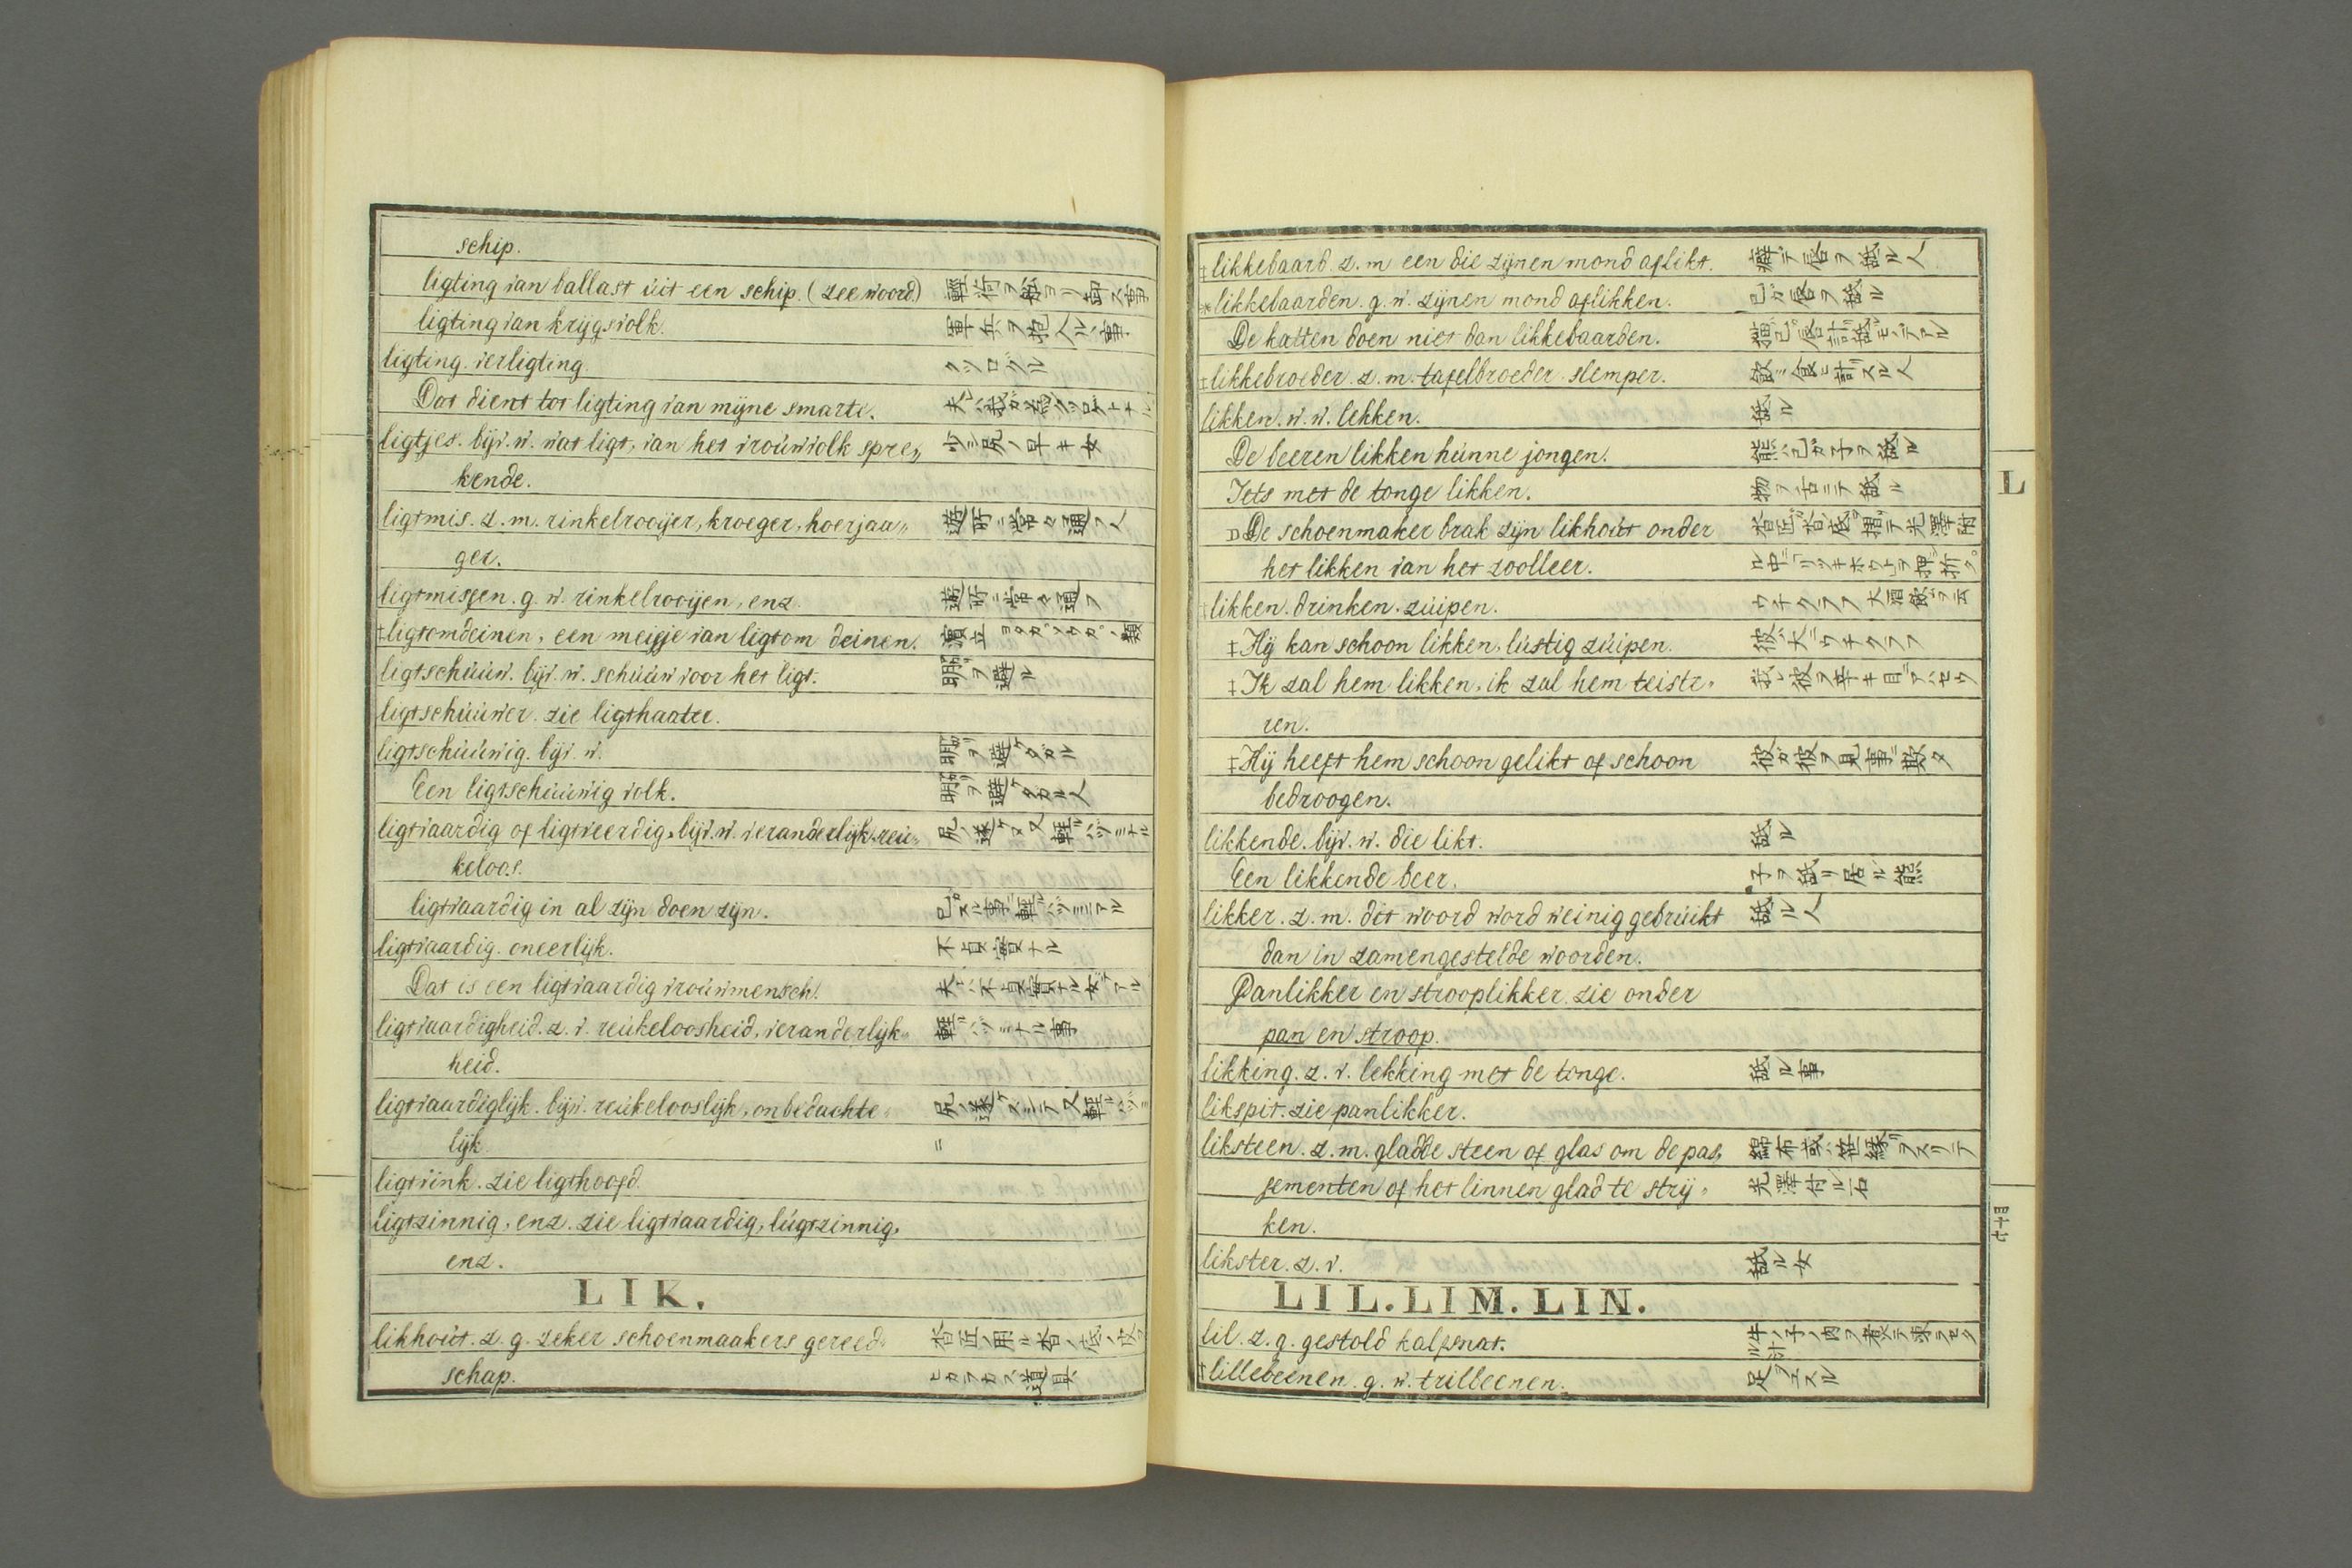 schip.
ligting van ballast uit een schip. (zee woord) 軽荷ヲ舩ヨリ卸ス事
ligting van krijgsvolk. 軍兵ヲ抱入ル事
ligting. verligting クツログル
Dat dient tot ligting van mijne smarte.
ligtjes. bijv. w. wat ligt, van het vrouwvolk spre„ 少シ尻ノ早キ女
kende.
ligtmis. z. m. rinkelrooijer, kroeger, hoerjaa„ 遊所ニ常々通フ人
ger.
ligtmissen. g. w. rinkelrooijen, enz. 遊所ニ常々通フ
‡ligtomdeinen, een meisje van ligtom deinen.
ligtschuuw. bijv. w. schuuw voor het ligt. 明リヲ避ル
ligtschuuwer. zie ligthaater.
ligtschuuwig. bijv. w. 明リヲ避ケタガル
Een ligtschuuwig volk. 明リヲ避ケタガル人
ligtvaardig of ligtveerdig, bijv. w. veranderlijk. reu„
keloos.
ligtvaardig in al zijn doen zijn.
ligtvaardig. oneerlijk. 不貞實ナル
Dat is een ligtvaardig vrouwmensch. 夫ハ不貞實ナル女デアル
ligtvaardigheid. z. v. reukeloosheid, veranderlijk„ 軽ハヅミナル事
heid.
ligtvaardiglijk. bijw. reukelooslijk, onbedachte„
lijk =
ligtvink. zie ligthoofd.
ligtzinnig, enz. zie ligtvaardig, lugtzinnig,
enz.
LIK.
likhout. z. g. zeker schoenmaakers gereed„ 沓匠ノ用ル沓ノ底ノ皮ヲ
schap. ヒカラカス道具
‡likkebaard. z. m een die zijnen mond aflikt. 癖デ唇ヲ舐ル人
*likkebaarden. g. w. zijnen mond aflikken. 己ガ唇ヲ舐ル
De katten doen niet dan likkebaarden.
‡likkebroeder. z. m. tafelbroeder. slemper.
likken. w. w. lekken. 舐ル
De beeren likken hunne jongen. 熊ハ己ガ子ヲ舐ル
Iets met de tonge likken. 物ヲ舌ニテ舐ル
De schoenmaker brak zijn likhout onder
het likken van het zoolleer.
‡likken. drinken. zuipen. ウチクラフ 大酒飲ヲ云
‡Hij kan schoon likken, lustig zuipen. 彼ハ大ニウチクラフ
‡Ik zal hem likken, ik zal hem teiste„
ren.
‡Hij heeft hem schoon gelikt of schoon 彼ガ彼ヲ見事ニ欺タ
bedroogen.
likkende. bijv. w. die likt. 舐ル
Een likkende beer. 子ヲ舐リ居ル熊
likker. z. m. dit woord word weinig gebruikt 舐ル人
dan in zamengestelde woorden.
Panlikker en strooplikker. zie onder
pan en stroop.
likking. z. v. lekking met de tonge. 舐ル事
likspit. zie panlikker.
liksteen. z. m. gladde steen of glas om de pas„
sementen of het linnen glad te strij„ 光澤付ル石
ken.
likster. z. v. 舐ル女
LIL. LIM. LIN.
lil. z. g. gestold kalfsnat.
‡lillebeenen. g. w. trilbeenen.
L